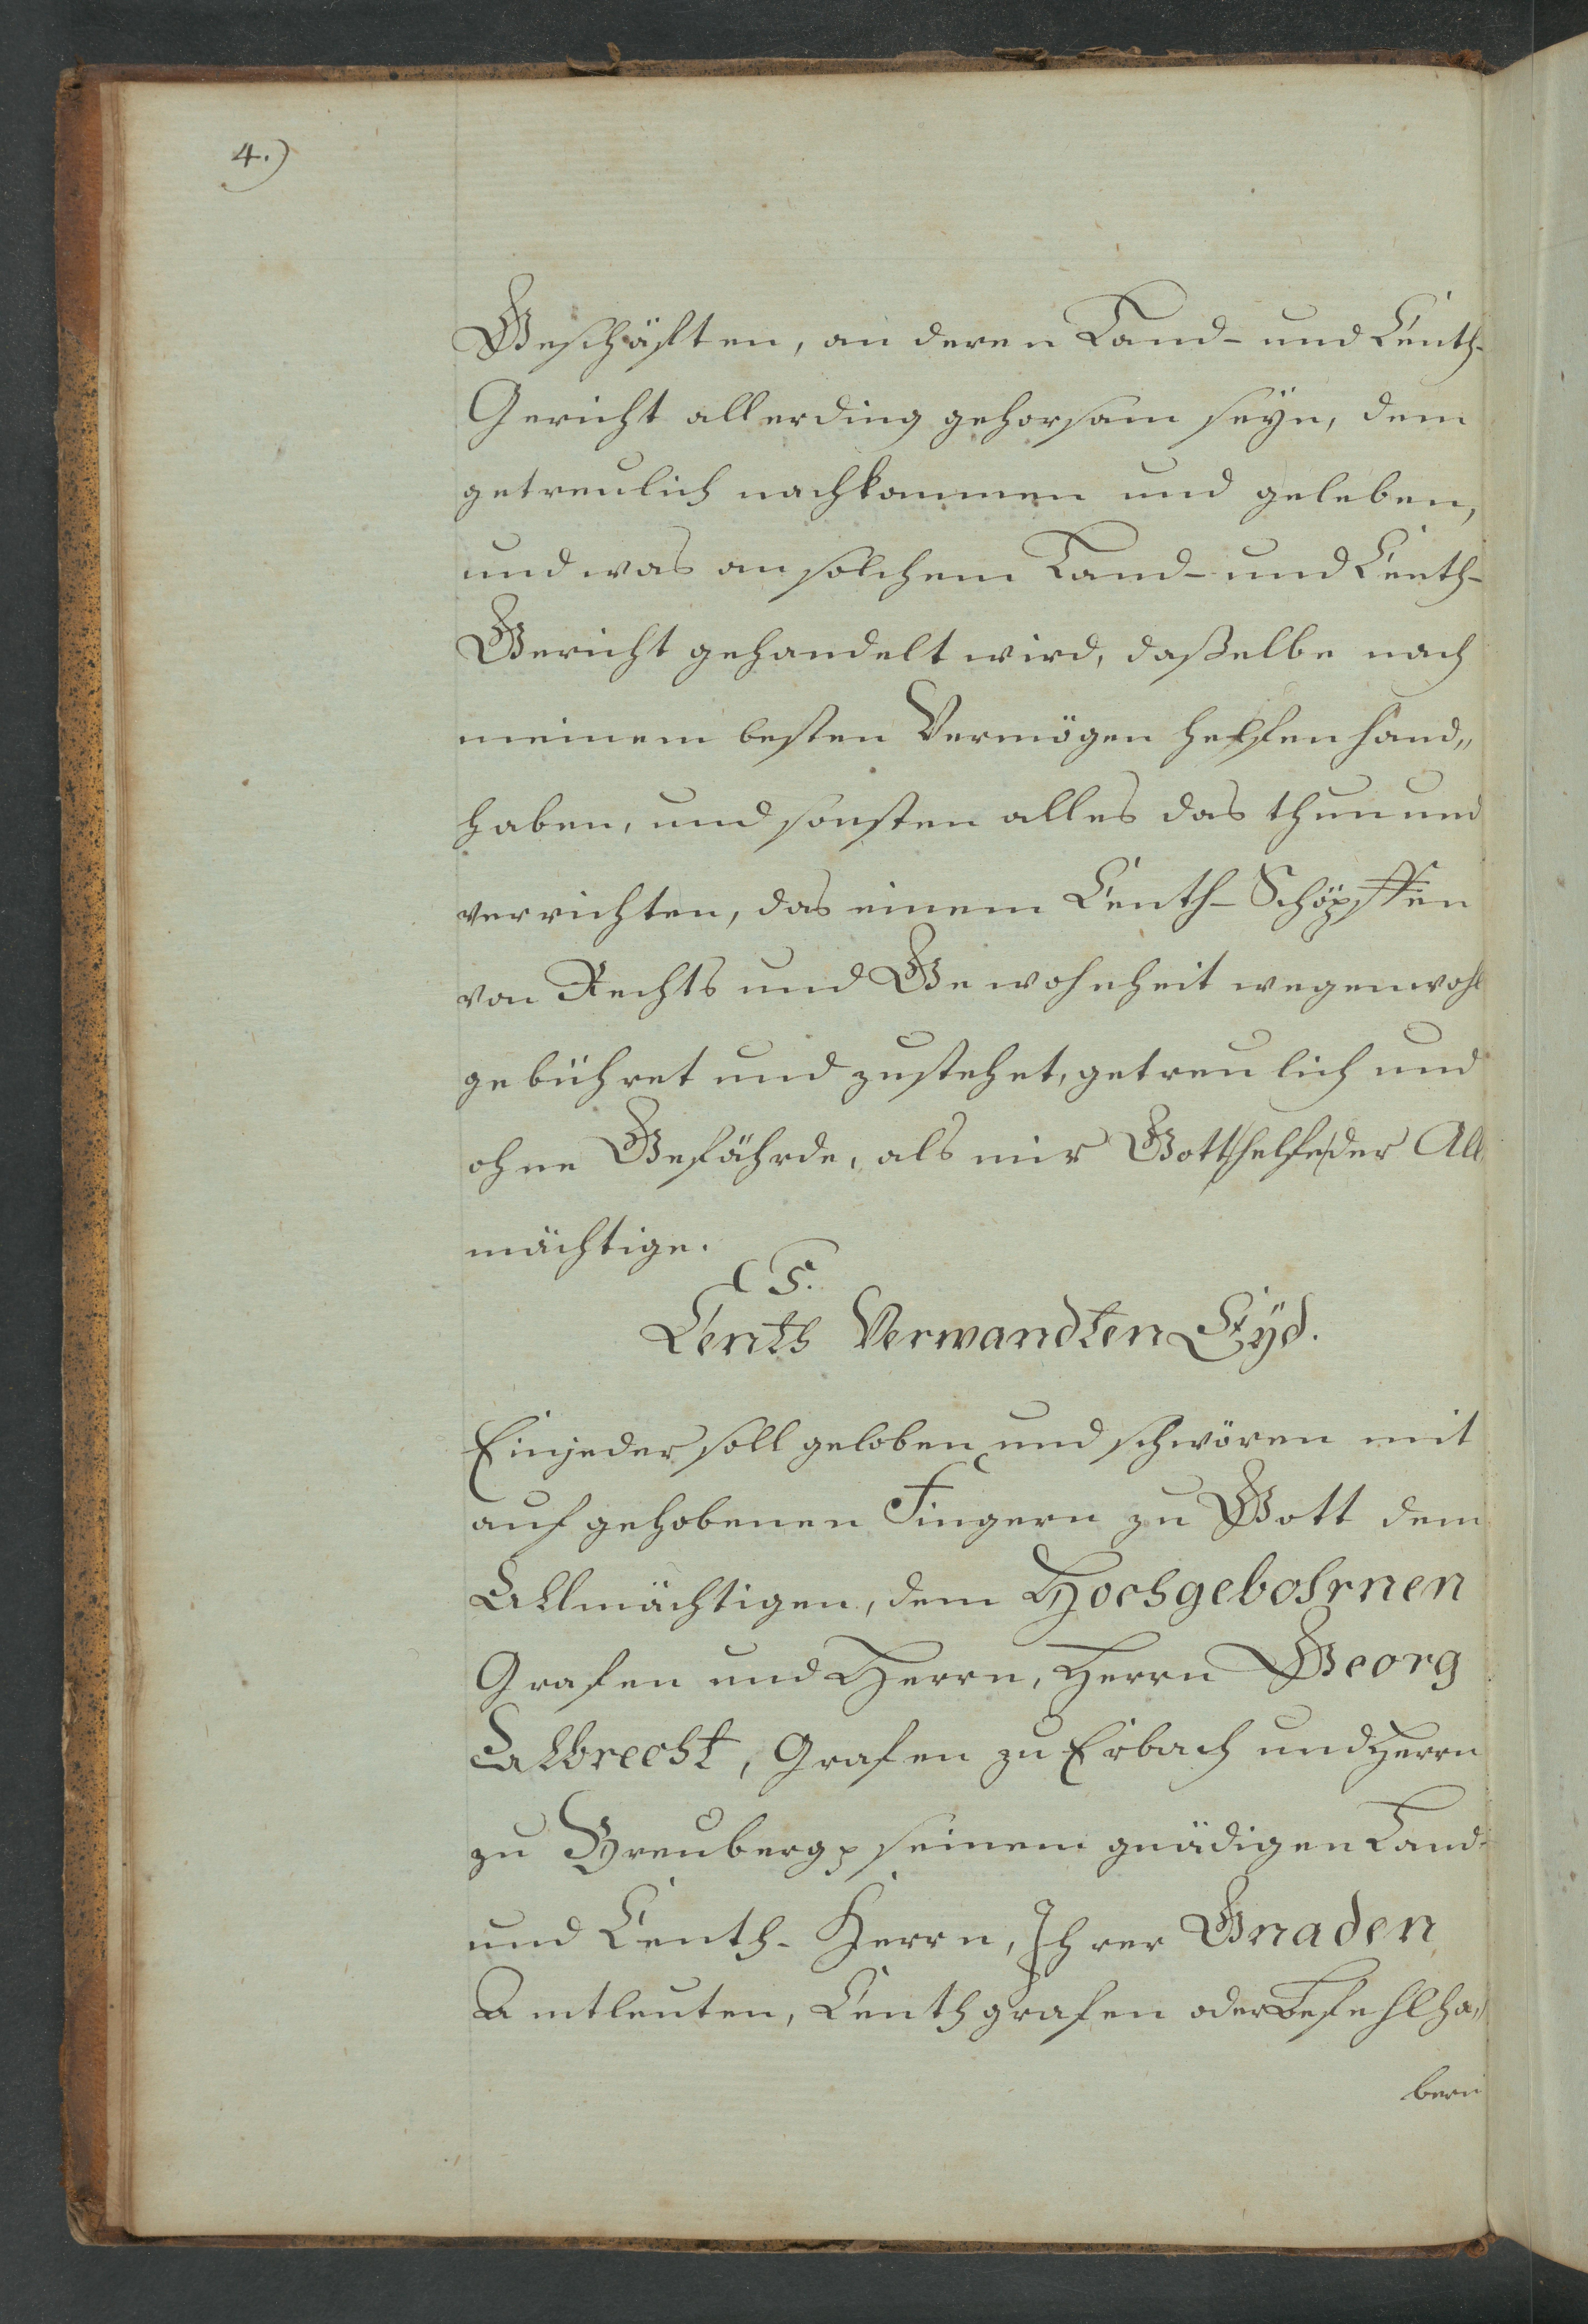 4.)
Geschäften, an deren Land- und Centh-
Gericht allerding gehorsam seyn, dem
getreulich nachkommen und geleben,
und was an solchem Land- und Centh-
Gericht gehandelt wird, daßelbe nach
meinem besten Vermögen helfen hand„
haben, und sonsten alles das thun und
verrichten, das einem Centh-Schöpffen
von Rechts und Gewohnheit wegen wohl
gebühret und zustehet, getreulich und
ohne Gefährde, als mir Gott helfe der All
mächtige.
Centh Verwandten Eyd.
Ein jeder soll geloben und schwören mit
aufgehobenen Fingern zu Gott dem
Allmächtigen, dem Hochgebohrnen
Grafen und Herrn, Herrn Georg
Albrecht, Grafen zu Erbach und Herrn
zu Breuberg p seinem gnädigen Land-
und Centh-Herrn, Ihrer Gnaden
Amtleuten, Centhgrafen oder Befehlha„
bern